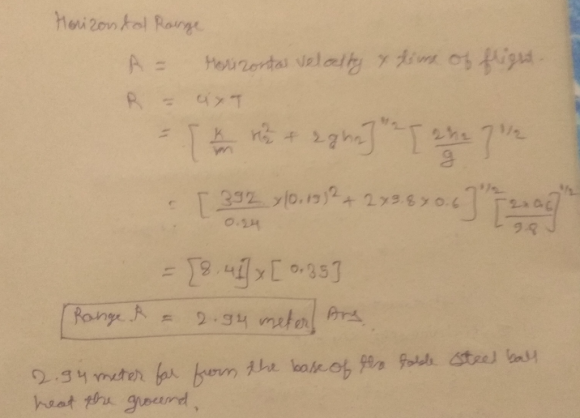 Horizontal Range
R = Horizontal velocity × time of flight.
R = u × T
= [ K/m x₂² + 2gh₂ ]^1/2 [ 2h₂/g ]^1/2
= [ 392/0.24 × (0.19)² + 2×9.8×0.6 ]^1/2 [ 2×0.6/9.8 ]^1/2
= [8.41] × [0.35]
Range R = 2.94 meter Ans.
2.94 meter far from the base of the table steel ball
heat the ground.